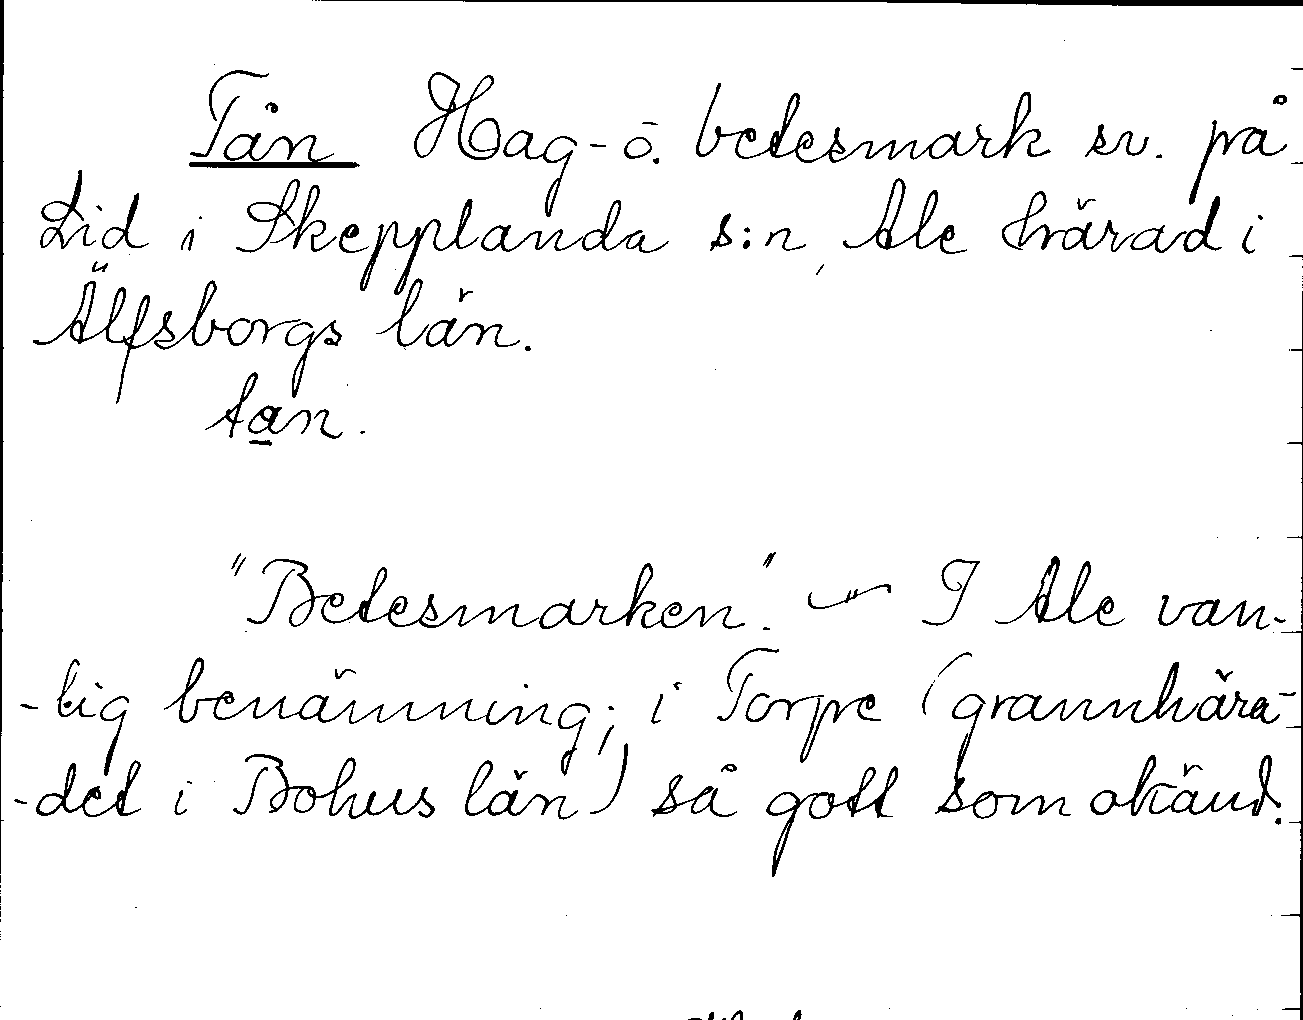 Tån Hag- o. betesmark sv. på
Lid i Skepplanda s:n, Ale härad i
Älfsborgs län.
tan.
"Betesmarken." — I Ale van-
-lig benämning; i Torpe (grannhära-
-det i Bohus län) så gott som okänd.